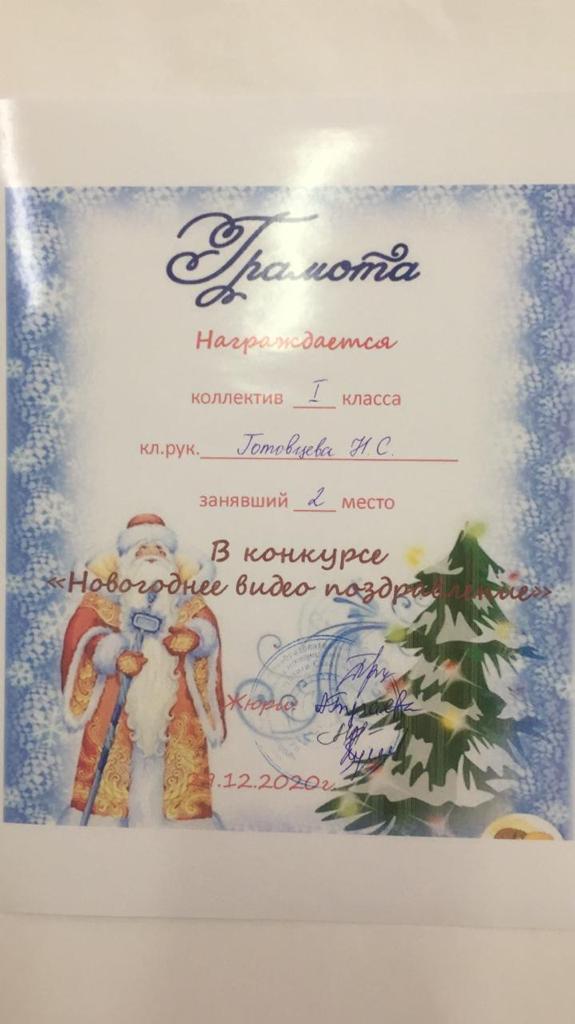 Грамота
Награждается
коллектив I класса
кл.рук. Готовцева Н.С.
занявший 2 место
В конкурсе
«Новогоднее видео поздравление»
Жюри:
.12.2020г.